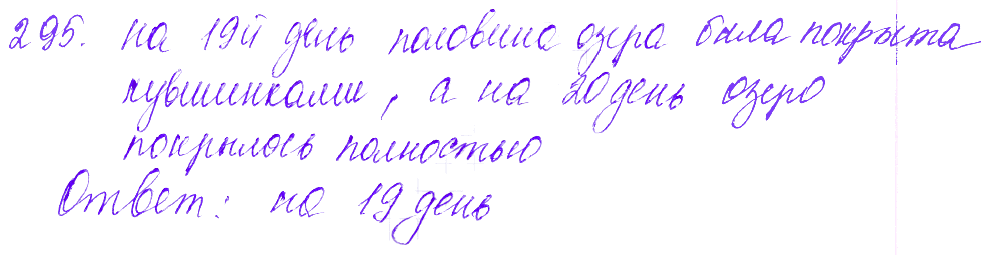 295. на 19й день половина озера была покрыта
кувшинками, а на 20 день озеро
покрылось полностью
Ответ: на 19 день